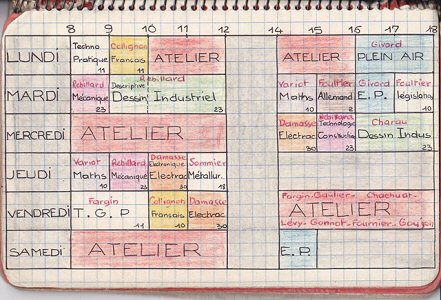 8 9 10 11 12 14 15 16 17 18
LUNDI Techno Pratique 11 Collignon Francais 11 ATELIER ATELIER Girard PLEIN AIR
MARDI Rebillard Mécanique 23 Descriptive Rebillard Dessin Industriel 23 Variot Maths 10 Foultier Allemand 2 Girard E.P. Foultier législation 10
MERCREDI ATELIER Damasse Electrac 30 Rebillard Technologie Constructio 23 Charau Dessin Indus 23
JEUDI Variot Maths 10 Rebillard Mécanique 23 Damasse Electronique Electrac 30 Sommier Métallur. 18
VENDREDI Fargin T.G.P 11 Collignon Francais 10 Damasse Electrac 30 Fargin-Gautier- Chachuat- ATELIER Lévy-Gonnot-Fournier-Goujon
SAMEDI ATELIER E.P.